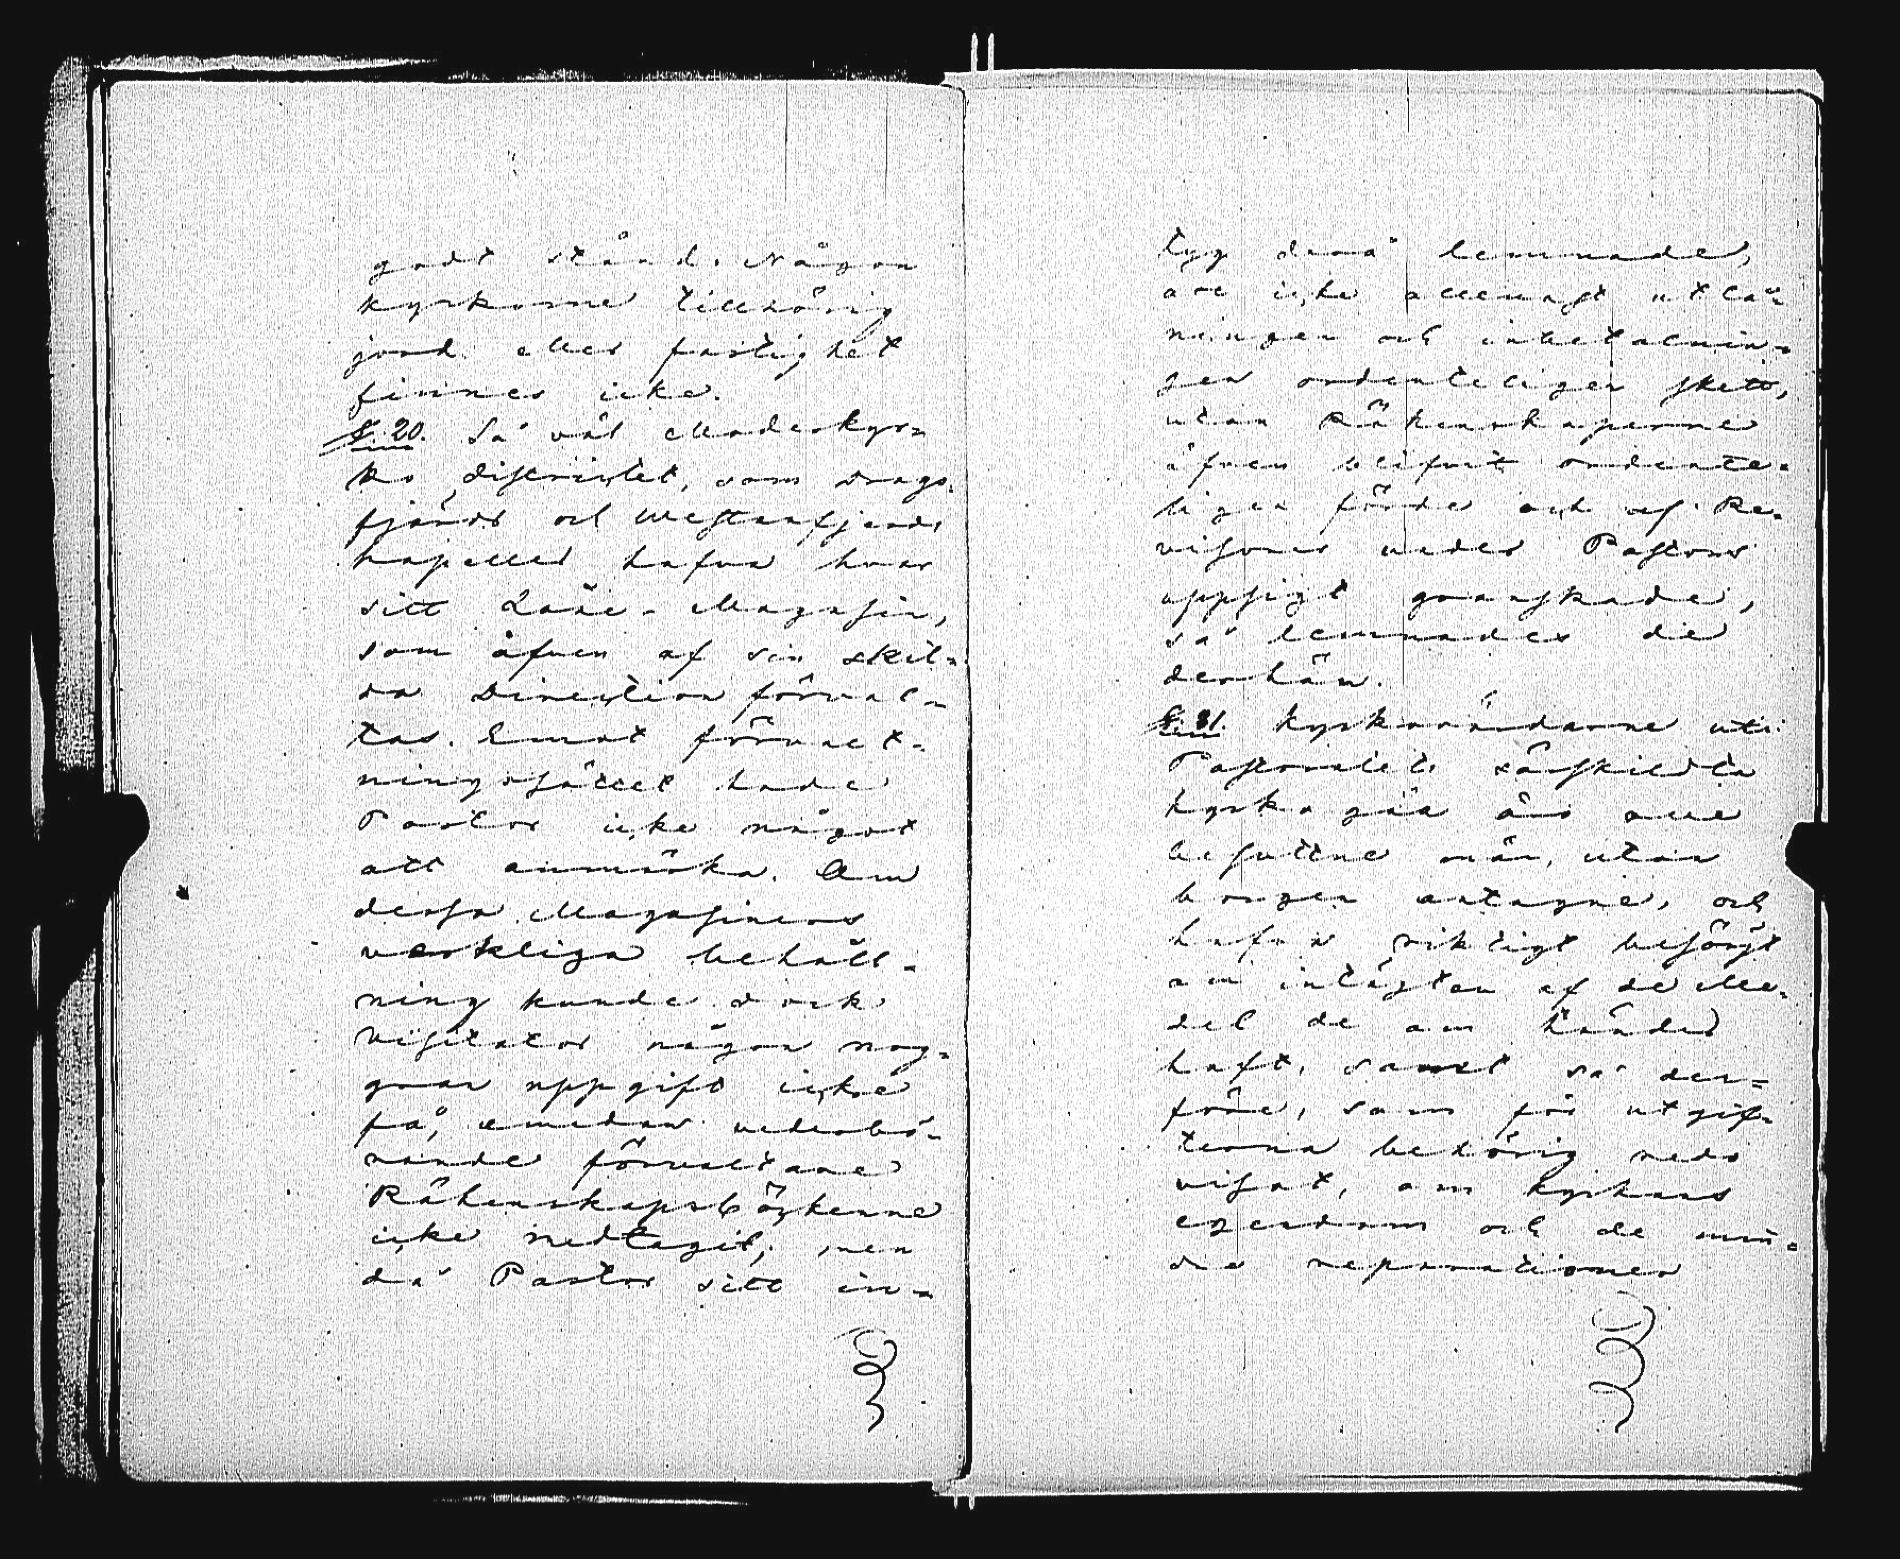 godt stånd. Någon
kyrkorne tillhörig
jord eller fastighet
finnes icke.
§. 20. Så väl Moderkyr-
ko districtet, som Drags-
fjärds och Westanfjerds
kapeller hafva hvar
sitt Låne-Magasin,
som äfven af sin skil-
da Direction förval-
tas. Emot förvalt-
nings sättet hade
Pastor icke något
att anmärka. Om
dessa Magasiners
verkliga behåll-
ning kunde dock
Visitator någon nog-
gran uppgift icke
få, emedan vederbö-
rande förvaltare
Räkenskapsböckerne
icke medtagit; men
då Pastor sitt in-
tyg derå lemnade,
att icke allenast utlå-
ningen och inbetalnin-
gen ordenteligen skett,
utan Räkenskaperne
äfven blifvit ordente-
ligen förde och af Re-
visorer under Pastors
uppsigt granskade,
så lemnades de
derhän.
§. 21. Kyrkovärdarne uti
Pastoratets särskildta
kyrkogäll äro alle
besuttne män, utan
borgen antagne, och
hafva riktigt besörjt
om intägten af de Me-
del de om händer
haft, samt så der-
före, som för utgif-
terna behörig redo
visat, om kyrkans
egendom och de min-
dre reparationer